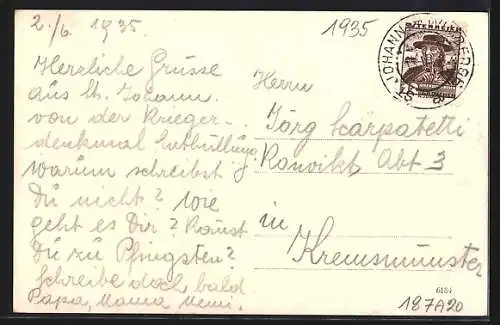 2./6. 1935.
Herzliche Grüsse
aus St. Johann.
von der Krieger-
denkmal Enthüllung.
Warum schreibst
Du nicht? Wie
geht es Dir? Kommst
Du zu Pfingsten?
Schreibe doch bald
Papa, Mama
1935
ÖSTERREICH
ST. JOHANN
Herrn
Jörg
Konvikt Abt 3
in
Kremsmünster
6184
187A20